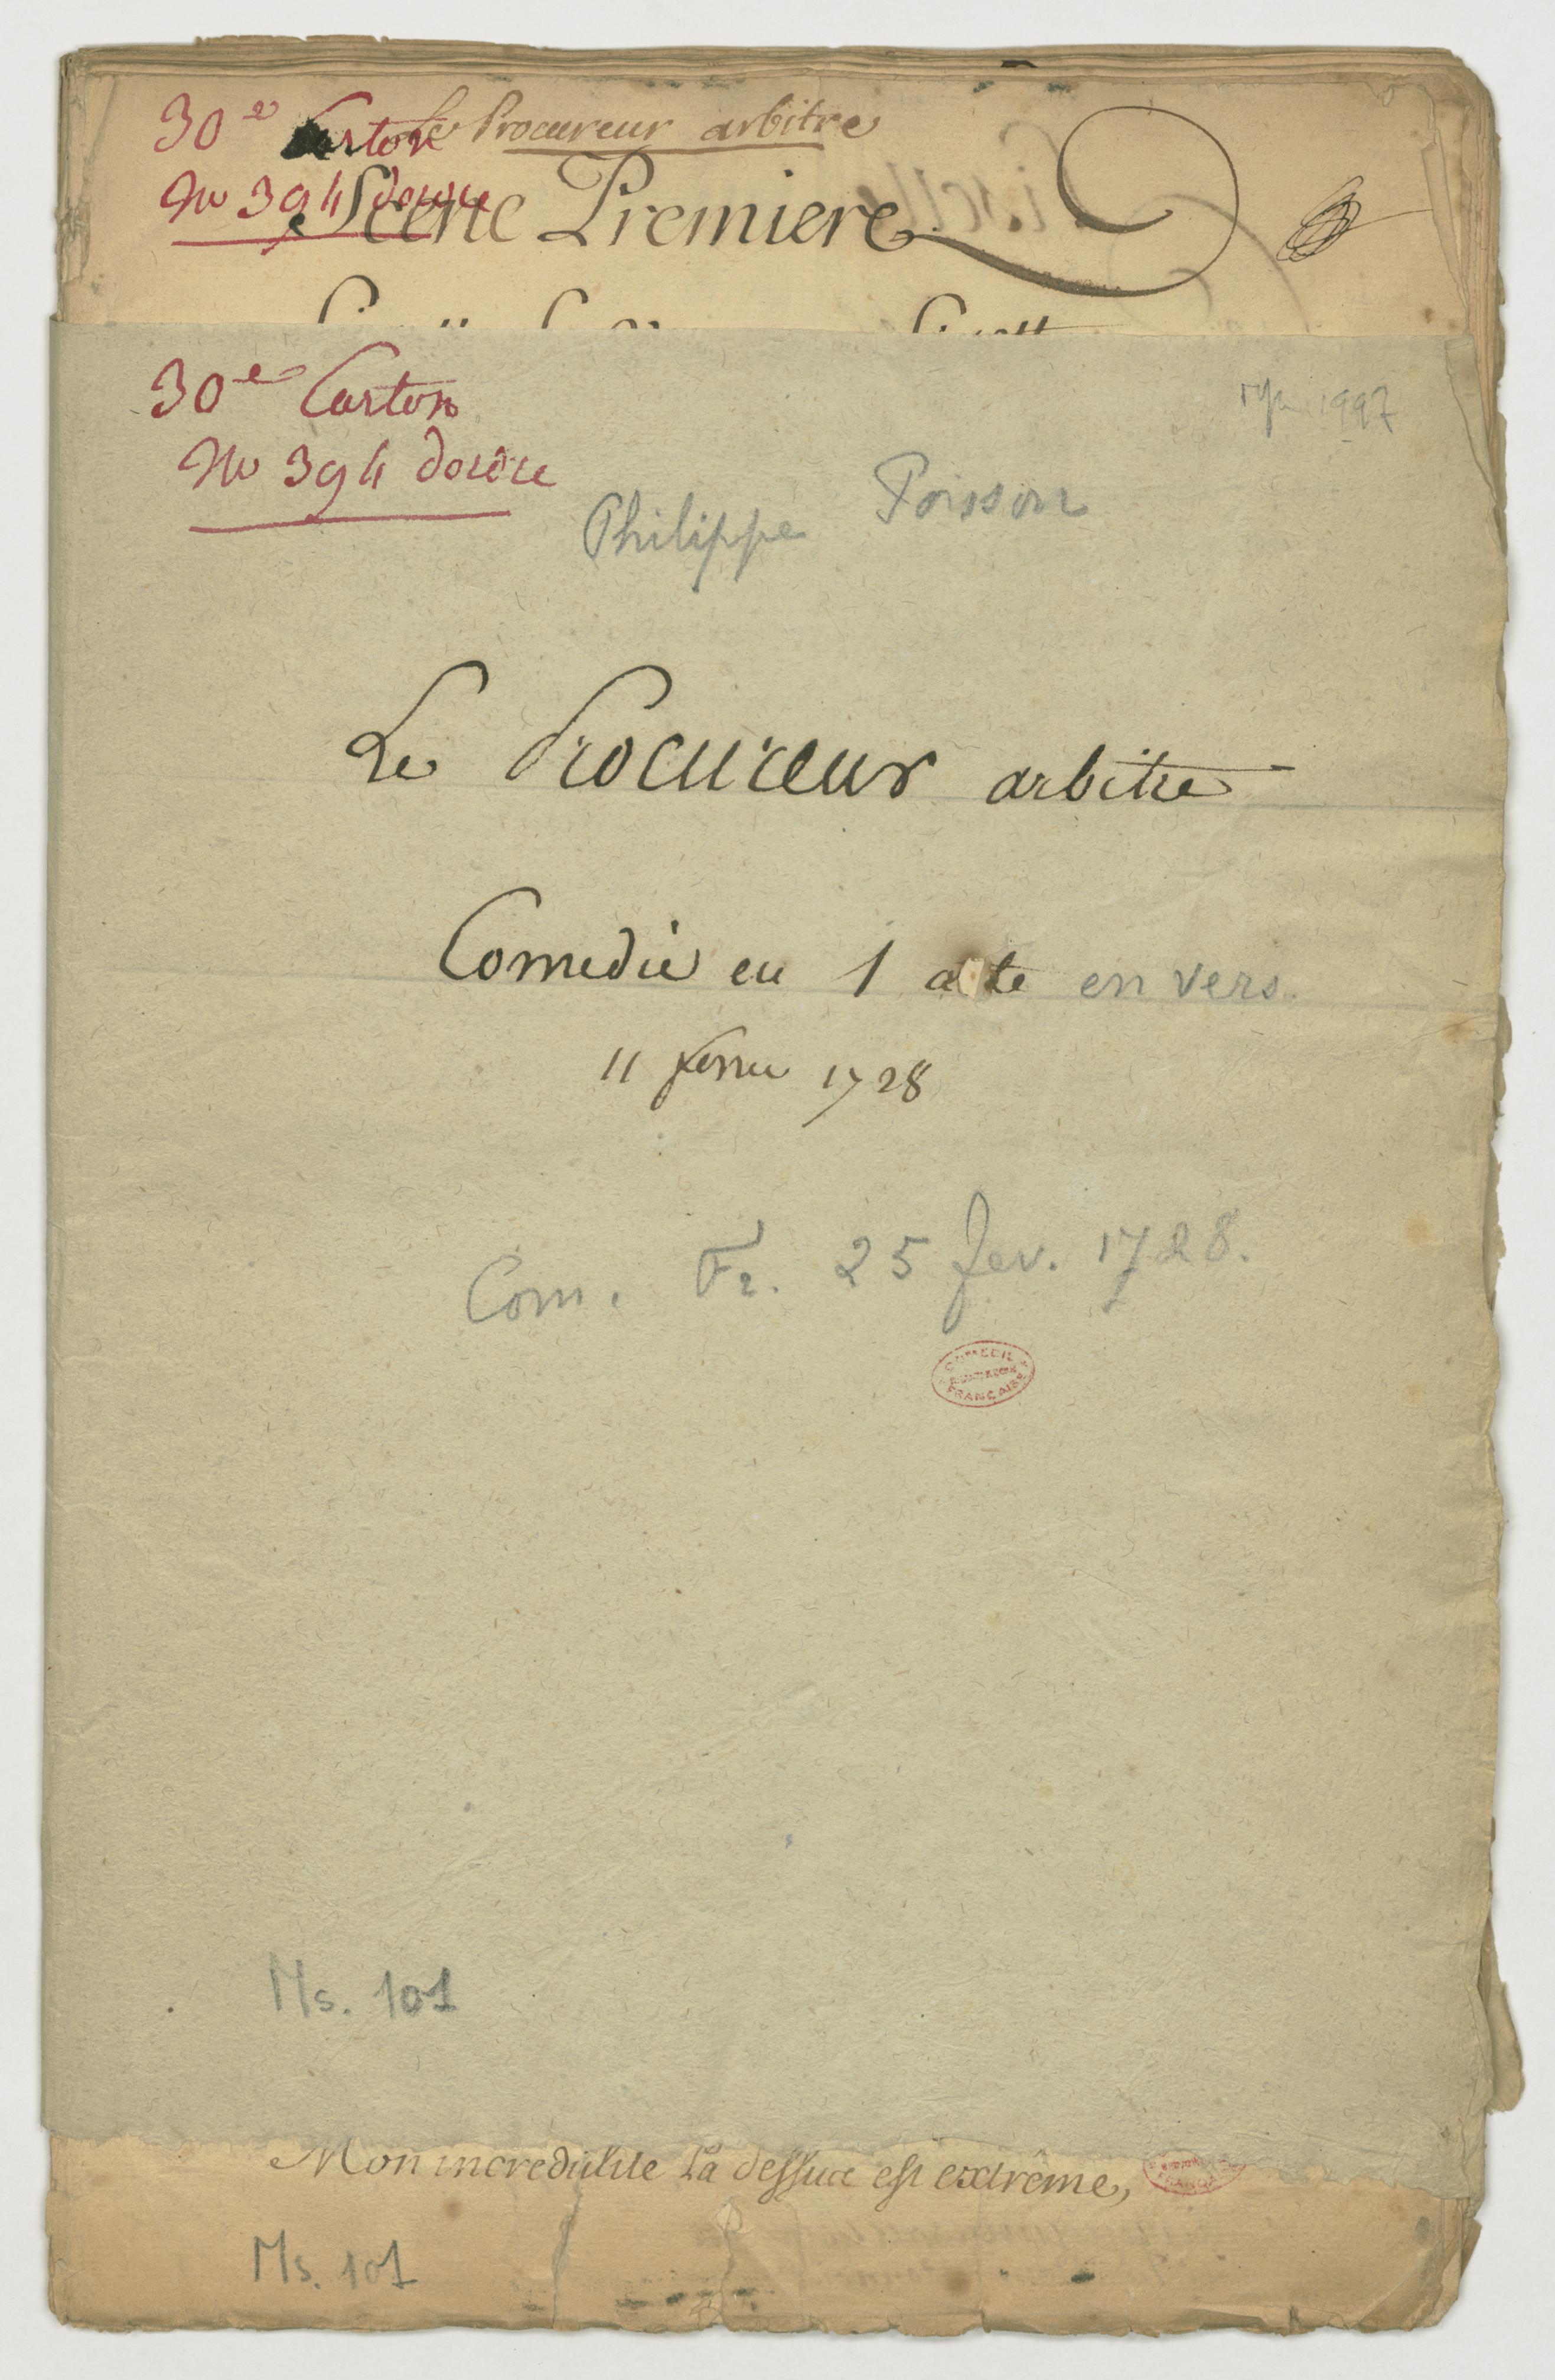 30e Carton
Le Procureur arbitre
No 394 dordre
Scene Premiere
30e Carton
No 394 dordre
1997
Philippe Poisson
Le Procureur arbitre
Comedie en 1 acte en vers.
11 1728
Com. Fr. 25 fev. 1728.
COMEDIE
FRANÇAISE
Ms. 101
Mon incredulite la dessus est extrême,
Ms. 101